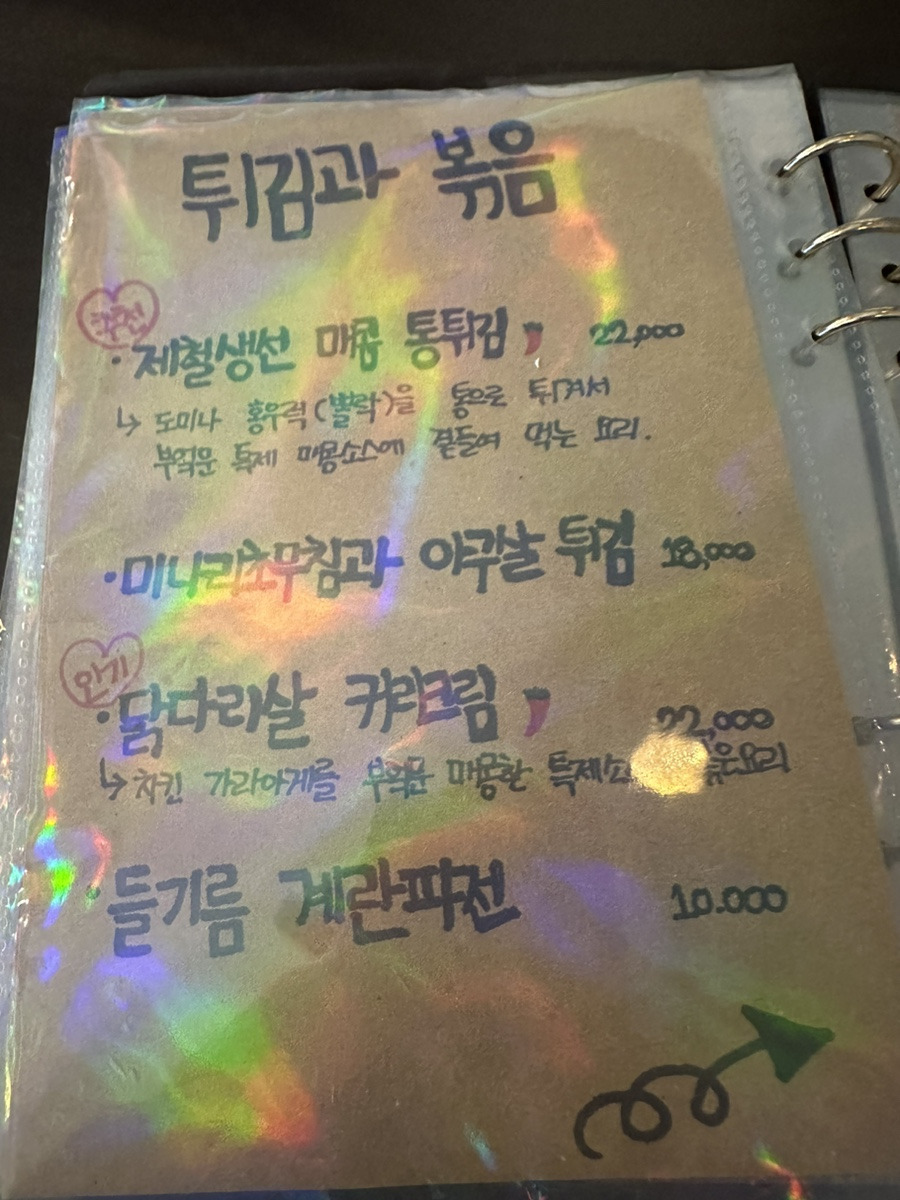 튀김과 볶음
추천
· 제철생선 매콤 통튀김 22,000
↳ 도미나 홍우럭(뽈락)을 통으로 튀겨서
부엌문 특제 매콤소스에 곁들여 먹는 요리.
· 미나리초무침과 아구살 튀김 18,000
인기
· 닭다리살 커리크림 22,000
↳ 치킨 가라아게를 부엌문 매콤한 볶은요리
· 들기름 계란파전 10.000